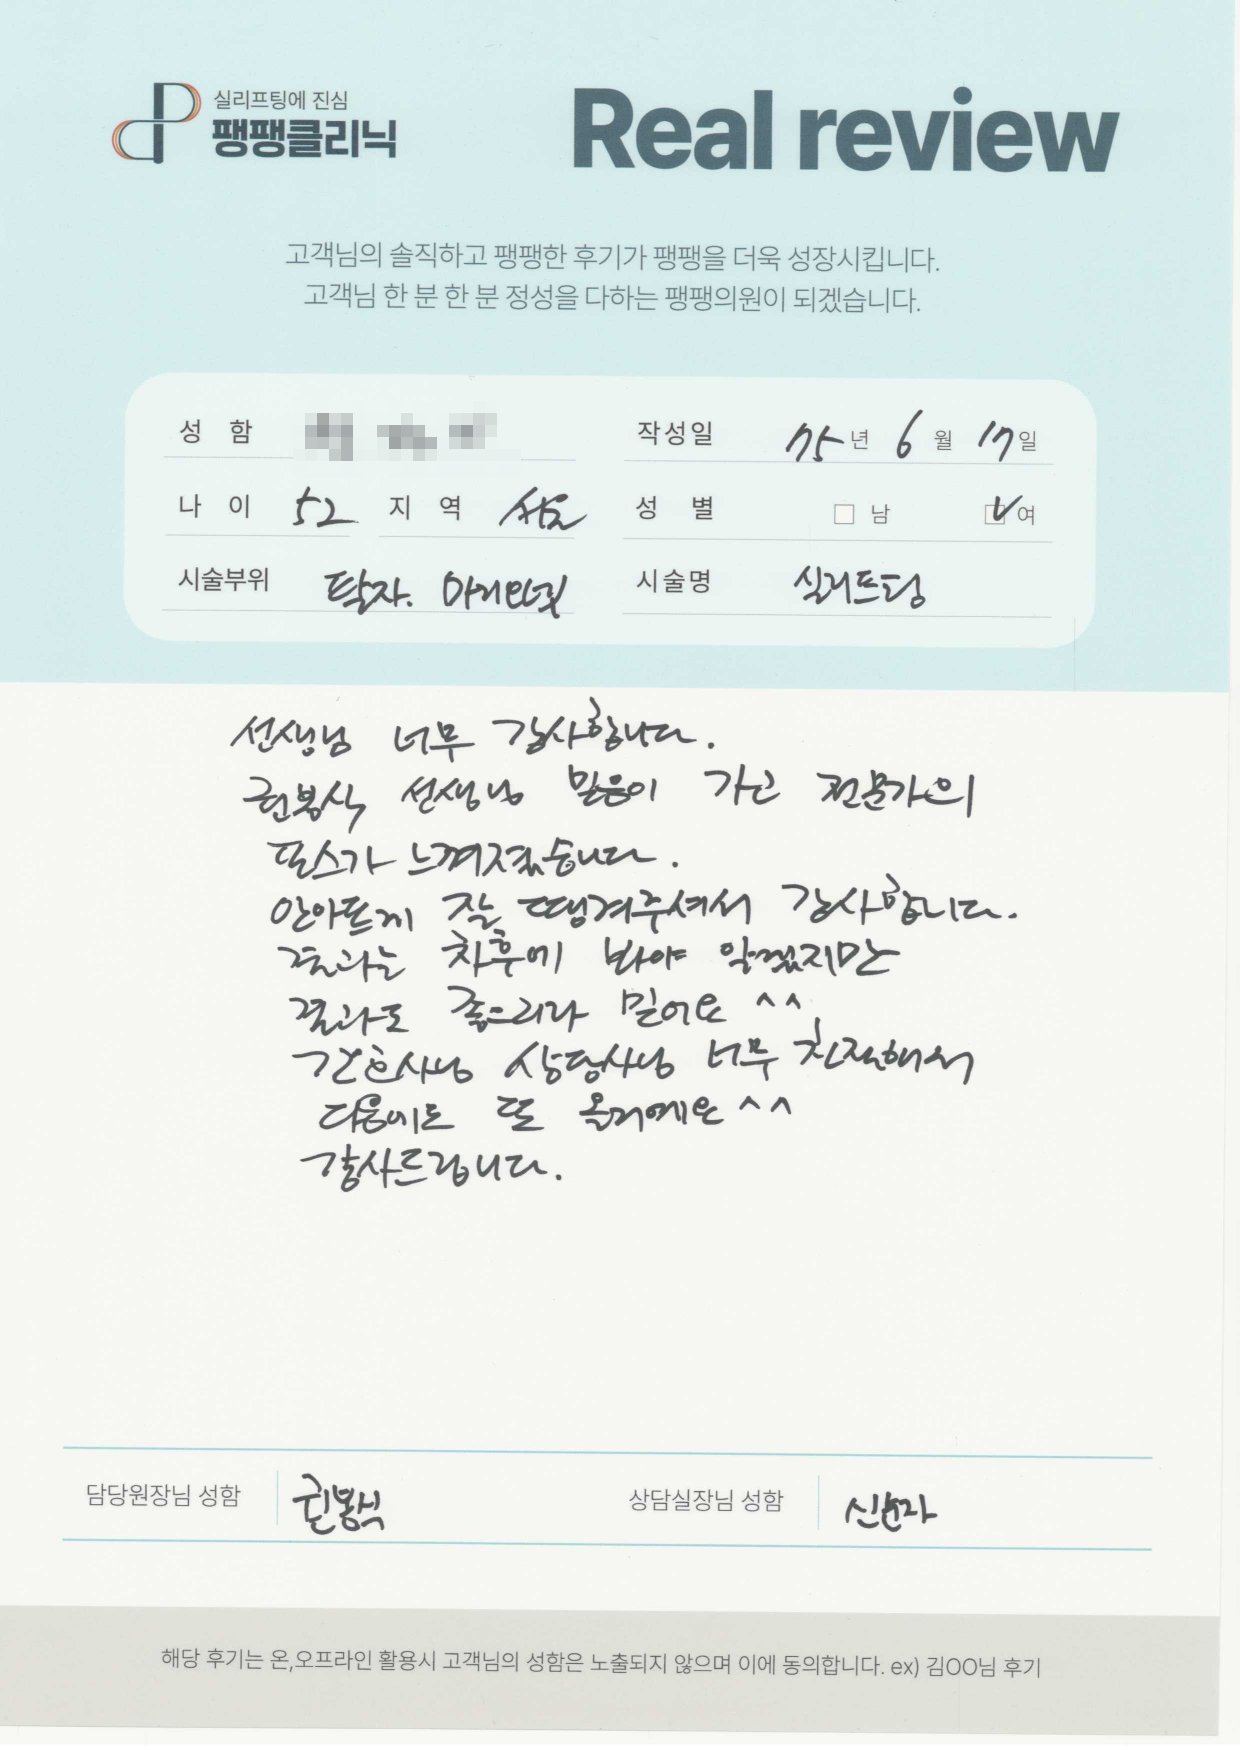 실리프팅에 진심
팽팽클리닉
Real review
고객님의 솔직하고 팽팽한 후기가 팽팽을 더욱 성장시킵니다.
고객님 한 분 한 분 정성을 다하는 팽팽의원이 되겠습니다.
성 함
작성일 75년 6월 17일
나 이 52 지 역 서울 성 별 남 여
시술부위 팔자. 마리오넷 시술명 실리프팅
선생님 너무 감사합니다.
권봉식 선생님 믿음이 가고 전문가의
포스가 느껴졌습니다.
안아프게 잘 땡겨주셔서 감사합니다.
결과는 차후에 봐야 알겠지만
결과도 좋으리라 믿어요 ^^
간호사님 상담사님 너무 친절해서
다음에도 또 올거예요 ^^
감사드립니다.
담당원장님 성함 권봉식 상담실장님 성함
해당 후기는 온,오프라인 활용시 고객님의 성함은 노출되지 않으며 이에 동의합니다. ex) 김OO님 후기